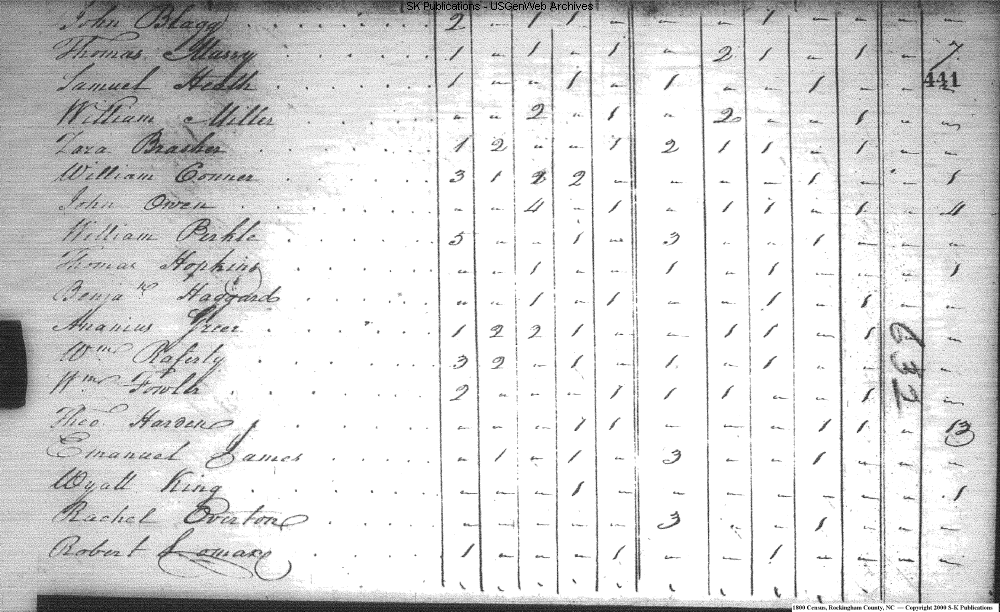 SK Publications - USGenWeb Archives
John Blagg 2 - 1 1 - - - 1 - - -
Thomas 1 - 1 - 1 - 2 1 - 1 - 7
441
Samuel Heath 1 - - 1 - 1 - - 1 - -
William Miller - - 2 - 1 - 2 - - 1 - -
Brasher 1 2 - - 1 2 1 1 - 1 - -
William Conner 3 1 2 2 - - - - 1 - - 1
John Owen - - 4 - 1 - 1 1 - 1 - 4
William 5 - - 1 - 3 - - 1 - - -
Thomas Hopkins - - 1 - - 1 - 1 - - - 1
Benja Haggard - - 1 - 1 - - 1 - 1 - -
Ananius Greer 1 2 2 1 - - 1 1 - 1 - -
Wm Raferty 3 2 - 1 - 1 - 1 - - - -
Wm 2 - - - 1 1 1 - - 1 - -
632
Theo. Harden - - - 1 1 - - - 1 1 - 13
Emanuel James - 1 - 1 - 3 - - 1 - - -
Wyatt King - - - 1 - - - - - - - 1
Rachel Overton - - - - - 3 - - 1 - - -
Robert Lomax 1 - - - 1 - - 1 - - - -
1800 Census, Rockingham County, NC — Copyright 2000 S-K Publications